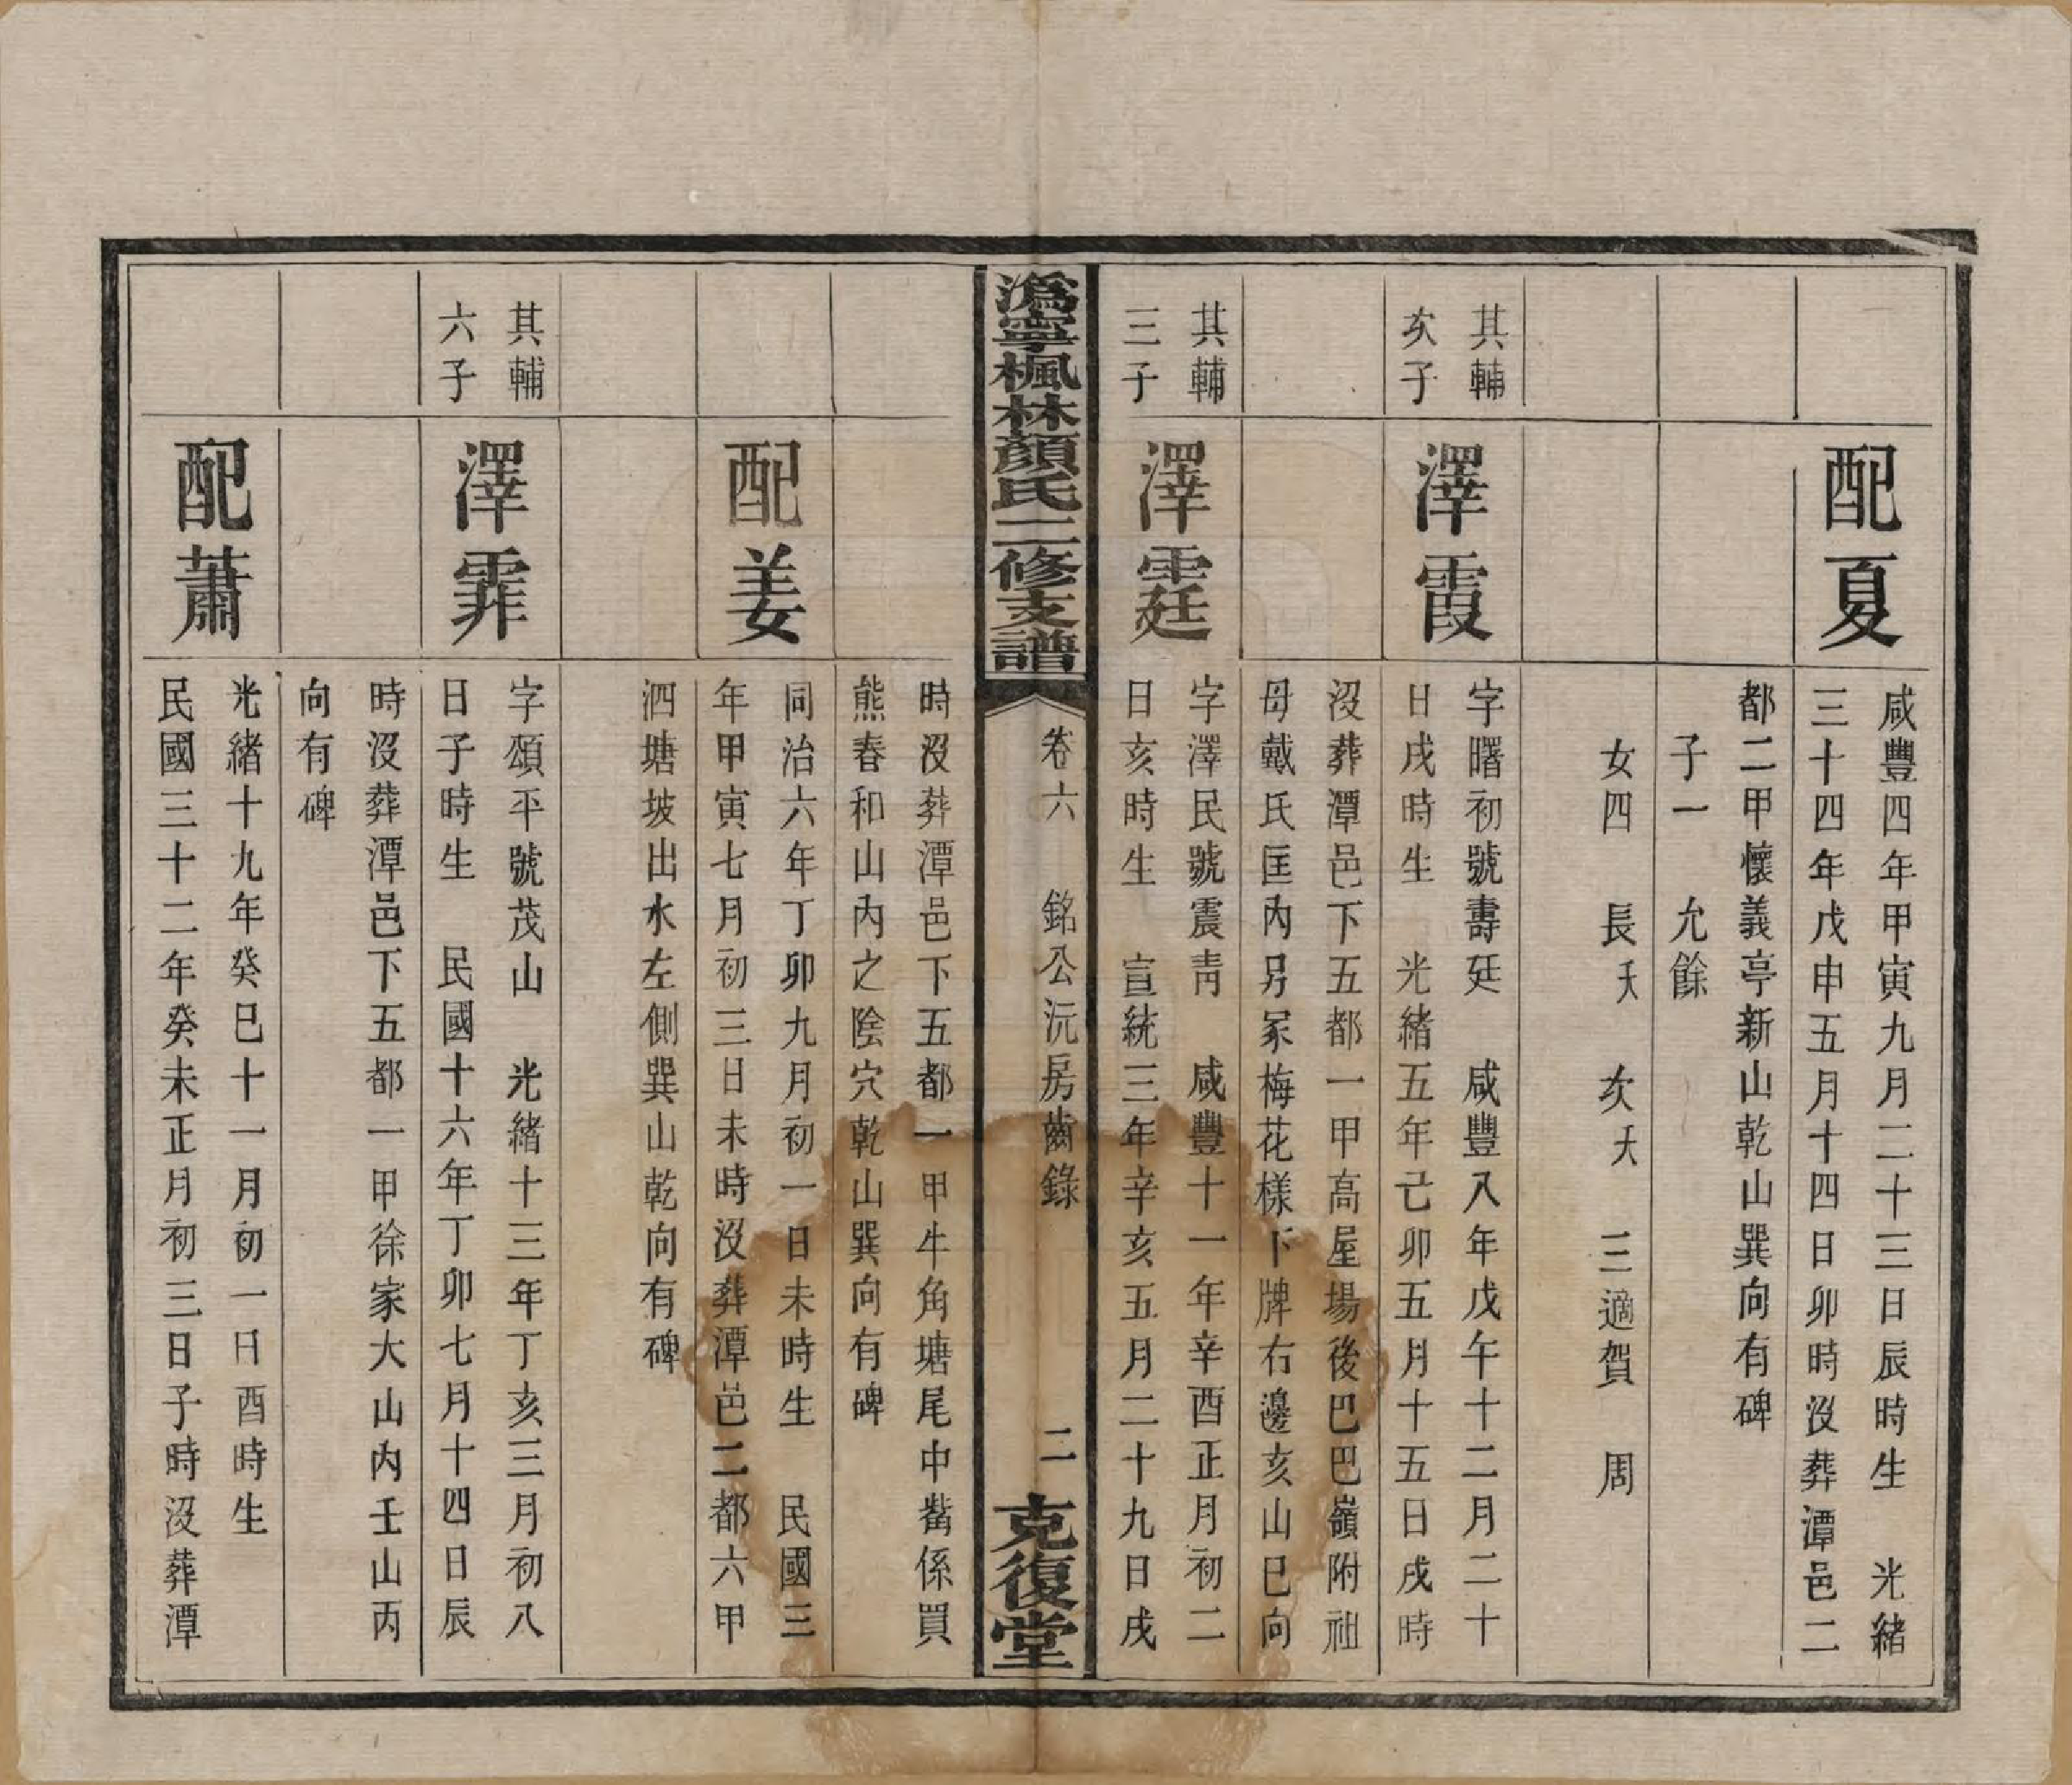 配夏
咸豐四年甲寅九月二十三日辰時生　光緒
三十四年戊申五月十四日卯時沒葬潭邑二
都二甲懷義亭新山乾山巽向有碑
子一　允餘
女四　長夭　次夭　三適賀　周
其輔
次子
澤霞
字曙初號壽廷　咸豐八年戊午十二月二十
日戌時生　光緒五年己卯五月十五日戌時
沒葬潭邑下五都一甲高屋場後巴巴嶺附祖
母戴氏匡內另冢梅花樣下牌右邊亥山巳向
其輔
三子
澤霆
字澤民號震青　咸豐十一年辛酉正月初二
日亥時生　宣統三年辛亥五月二十九日戌
溈寧楓林顏氏三修支譜
卷六　銘公沅房齒錄　二
克復堂
時沒葬潭邑下五都一甲牛角塘尾中嵆係買
熊春和山內之陰穴乾山巽向有碑
配姜
同治六年丁卯九月初一日未時生　民國三
年甲寅七月初三日未時沒葬潭邑二都六甲
泗塘坡出水左側巽山乾向有碑
其輔
六子
澤霏
字頌平號茂山　光緒十三年丁亥三月初八
日子時生　民國十六年丁卯七月十四日辰
時沒葬潭邑下五都一甲徐家大山內壬山丙
向有碑
配蕭
光緒十九年癸巳十一月初一日酉時生
民國三十二年癸未正月初三日子時沒葬潭